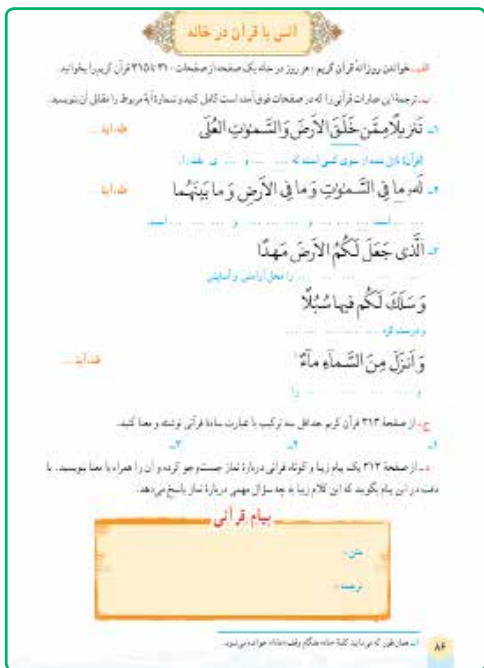 انس با قرآن در خانه
الف ـ خواندن روزانهٔ قرآن کریم : هر روز در خانه یک صفحه از صفحات ۳۱۰ تا ۳۱۵ قرآن کریم را بخوانید.
ب ـ ترجمهٔ این عبارات قرآنی را که در صفحات فوق آمده است کامل کنید و شمارهٔ آیهٔ مربوط را مقابل آن بنویسید.
۱ـ تَنزیلًا مِمَّن خَلَقَ الاَرضَ وَ السَّمٰوٰتِ العُلَی طه، آیهٔ ...
(قرآن) نازل شده از سوی کسی است که ... ... و ... ی بلند را.
۲ـ لَهُ ما فِی السَّمٰوٰتِ وَ ما فِی الاَرضِ وَ ما بَینَهُما طه، آیهٔ ...
... ... است ... ... و ... ... و ... ... است.
۳ـ اَلَّذی جَعَلَ لَکُمُ الاَرضَ مَهدًا
... ... ... ... را محل آرامش و آسایش
وَ سَلَكَ لَکُم فیها سُبُلًا
و درست کرد ... ... ...
وَ اَنزَلَ مِنَ السَّماءِ ماءً ۱ طه، آیهٔ ...
و ... ... ... را
ج ـ از صفحهٔ ۳۱۳ قرآن کریم حداقل سه ترکیب یا عبارت سادهٔ قرآنی نوشته و معنا کنید.
۱ـ ۲ـ ۳ـ
د ـ از صفحهٔ ۳۱۲ یک پیام زیبا و کوتاه قرآنی دربارهٔ نماز جست‌وجو کرده و آن را همراه با معنا بنویسید. با
دقت در این پیام بگویند که این کلام زیبا به چه سؤال مهمی دربارهٔ نماز پاسخ می‌دهد.
پیام قرآنی
متن :
ترجمه :
۱ـ همان طور که می‌دانید کلمهٔ «ماءً» هنگام وقف «ماءا» خوانده می‌شود.
۸۶